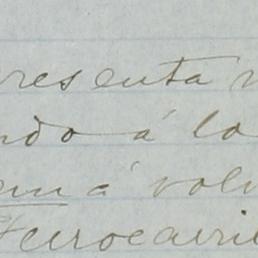 resenta
ndo á la
á volv
Ferrocarri